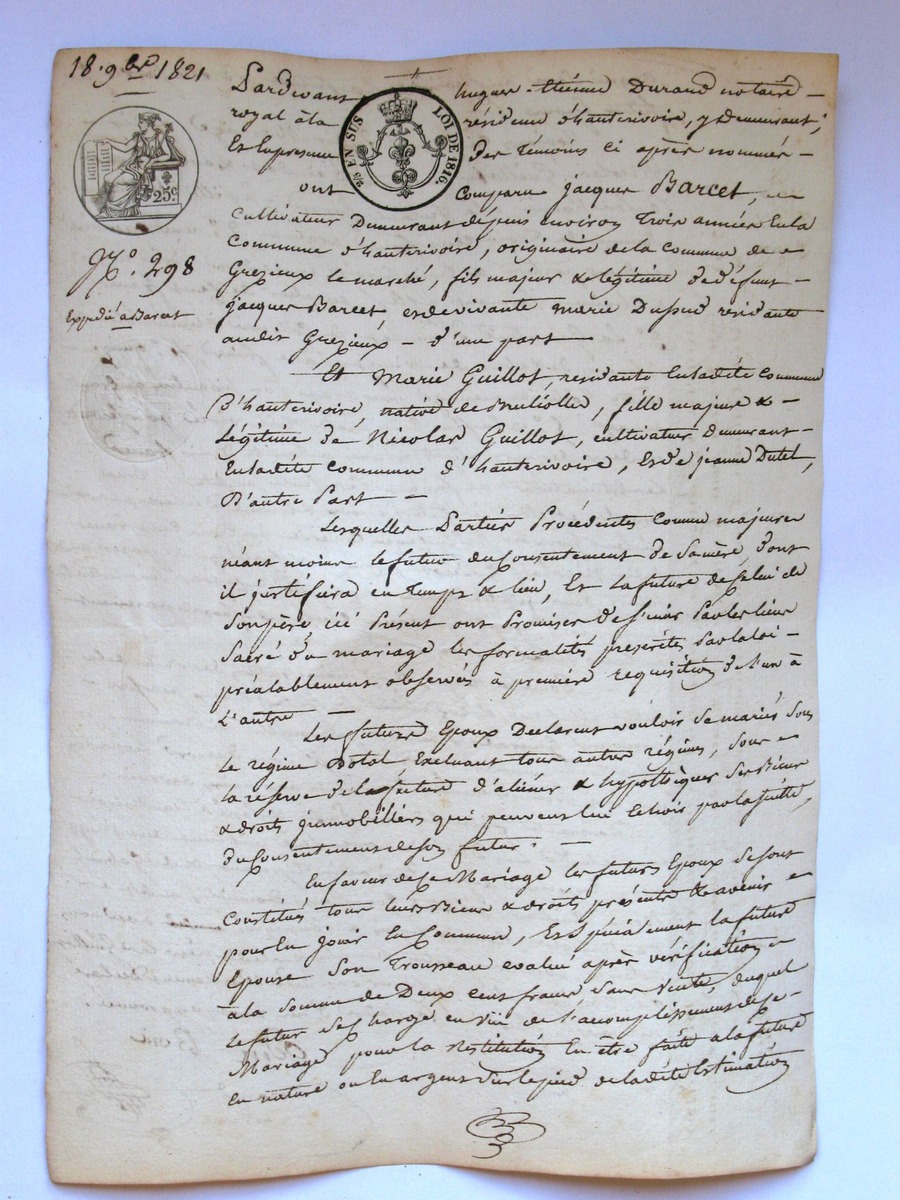 18. 9bre 1821
25c
2/5 EN SUS LOI DE 1816.
No. 298
Expédié à Barcet
Pardevant hugues-étienne Durand notaire
royal à la résidence d'hauterivoire, y demeurant,
Et En presence des témoins ci après nommés
ont comparu jacques Barcet,
cultivateur Demeurant depuis environ trois années En la
commune d'hauterivoire, originaire de la commune de
Grezieux le marché, fils majeur & légitime de défunt
jacques Barcet et de vivante marie Dupud residante
audit Grezieux - d'une part
Et Marie Guillot, residante En ladite commune
D'hauterivoire, native de Bruliolle, fille majeure &
Légitime de Nicolas Guillot, cultivateur Demeurant
En ladite commune d'hauterivoire, Et de jeanne Dutel,
D'autre Part
Lesquelles Parties Procédentes comme majeures
néant moins le futur du Consentement de sa mère, dont
il justifiera en temps & lieu, Et la future de celui de
son père, ici Présent ont Promises de s'unir Par les liens
sacré du mariage les formalités prescrites Par la loi
préalablement observés à première requisition de l'un à
L'autre
Les futurs Epoux Déclarent vouloir se mariés sous
le régime Dotal Excluant tous autres régimes, sous
la réserve de la future d'aliéner & hypothéquer ses Biens
& droits jmmobilliers qui peuvent lui Echoir par la suitte,
du Consentement de son futur.
En faveur de ce Mariage les futurs Epoux se sont
Constitués tous leurs Biens & droits présents & avenir
pour En jouir En Commun, Et spécialement la future
Epouse son Trousseau evalué après vérification
à la somme de Deux cent francs sans vente, duquel
le futur se charge en vue de l'accomplissement de ce
Mariage pour la restitution En être faite à la future
en nature ou En argent sur le pied de ladite Estimation